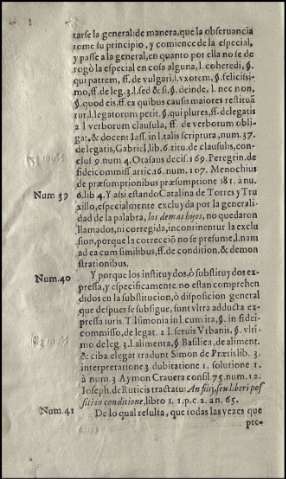 tarse la general: de manera, que la obseruancia
tome su principio, y comience de la especial,
y passe a la general, en quanto por ella no se de-
rogò la especial en cosa alguna, l. coheredi, §.
qui patrem, ff. de vulgari, l. vxorem, §. felicissi-
mo, ff. de leg. 3. l. sed & si §. deinde, l. nec non,
§. quod eis. ff. ex quibus causis maiores restituã
tur. l. legatorum petit. §. qui plures, ff. de legatis
2. l. verborum clausula, ff. de verborum oblig-
at, & docent Iass. in l. talis scriptura, num. 37.
de legatis, Gabriel, lib. 6. titu. de clausulis, con-
clus. 9. num 4. Otalaus decis. 169. Peregrin. de
fideicommiss. artic. 16. num. 107. Menochius
de præsumptionibus præsumptione 181. à nu.
Num 39 6. lib 4. Y assi estando Catalina de Torres y Tru
xillo, especialmente excluyda por la generali-
dad de la palabra, los demas hijos, no quedaron
llamados, ni corregida, incontinentur la exclu
sion, porque la correcciõ no se presume, l. nam
ad ea cum similibus, ff. de condition, & demon
strationibus.
Num. 40 Y porque los instituydos, ò substituydos ex-
pressa, y especificamente no estan comprehen
didos en la substitucion, ò disposicion general
que despues se subsigue, sunt vltra adducta ex-
pressa iuris Testimonia in l. cum ita, §. in fidei-
commisso, de legat. 2. l. seruis Vrbanis. §. vlti-
mo de leg. 3. l. alimenta, §. Basilicæ, de aliment.
& ciba. elegat tradunt Simon de Prætis lib. 3.
interpretatione 3. dubitatione 1. solutione 1.
à num. 3 Aymon Crauera consil 75. num. 12.
Ioseph. de Rusticis tractatu An fiẽj seu liberi pos
siti in conditione, libro 1. 1. p. c. 2. an. 65.
Num. 41 De lo qual resulta, que todas las vezes que
pre-